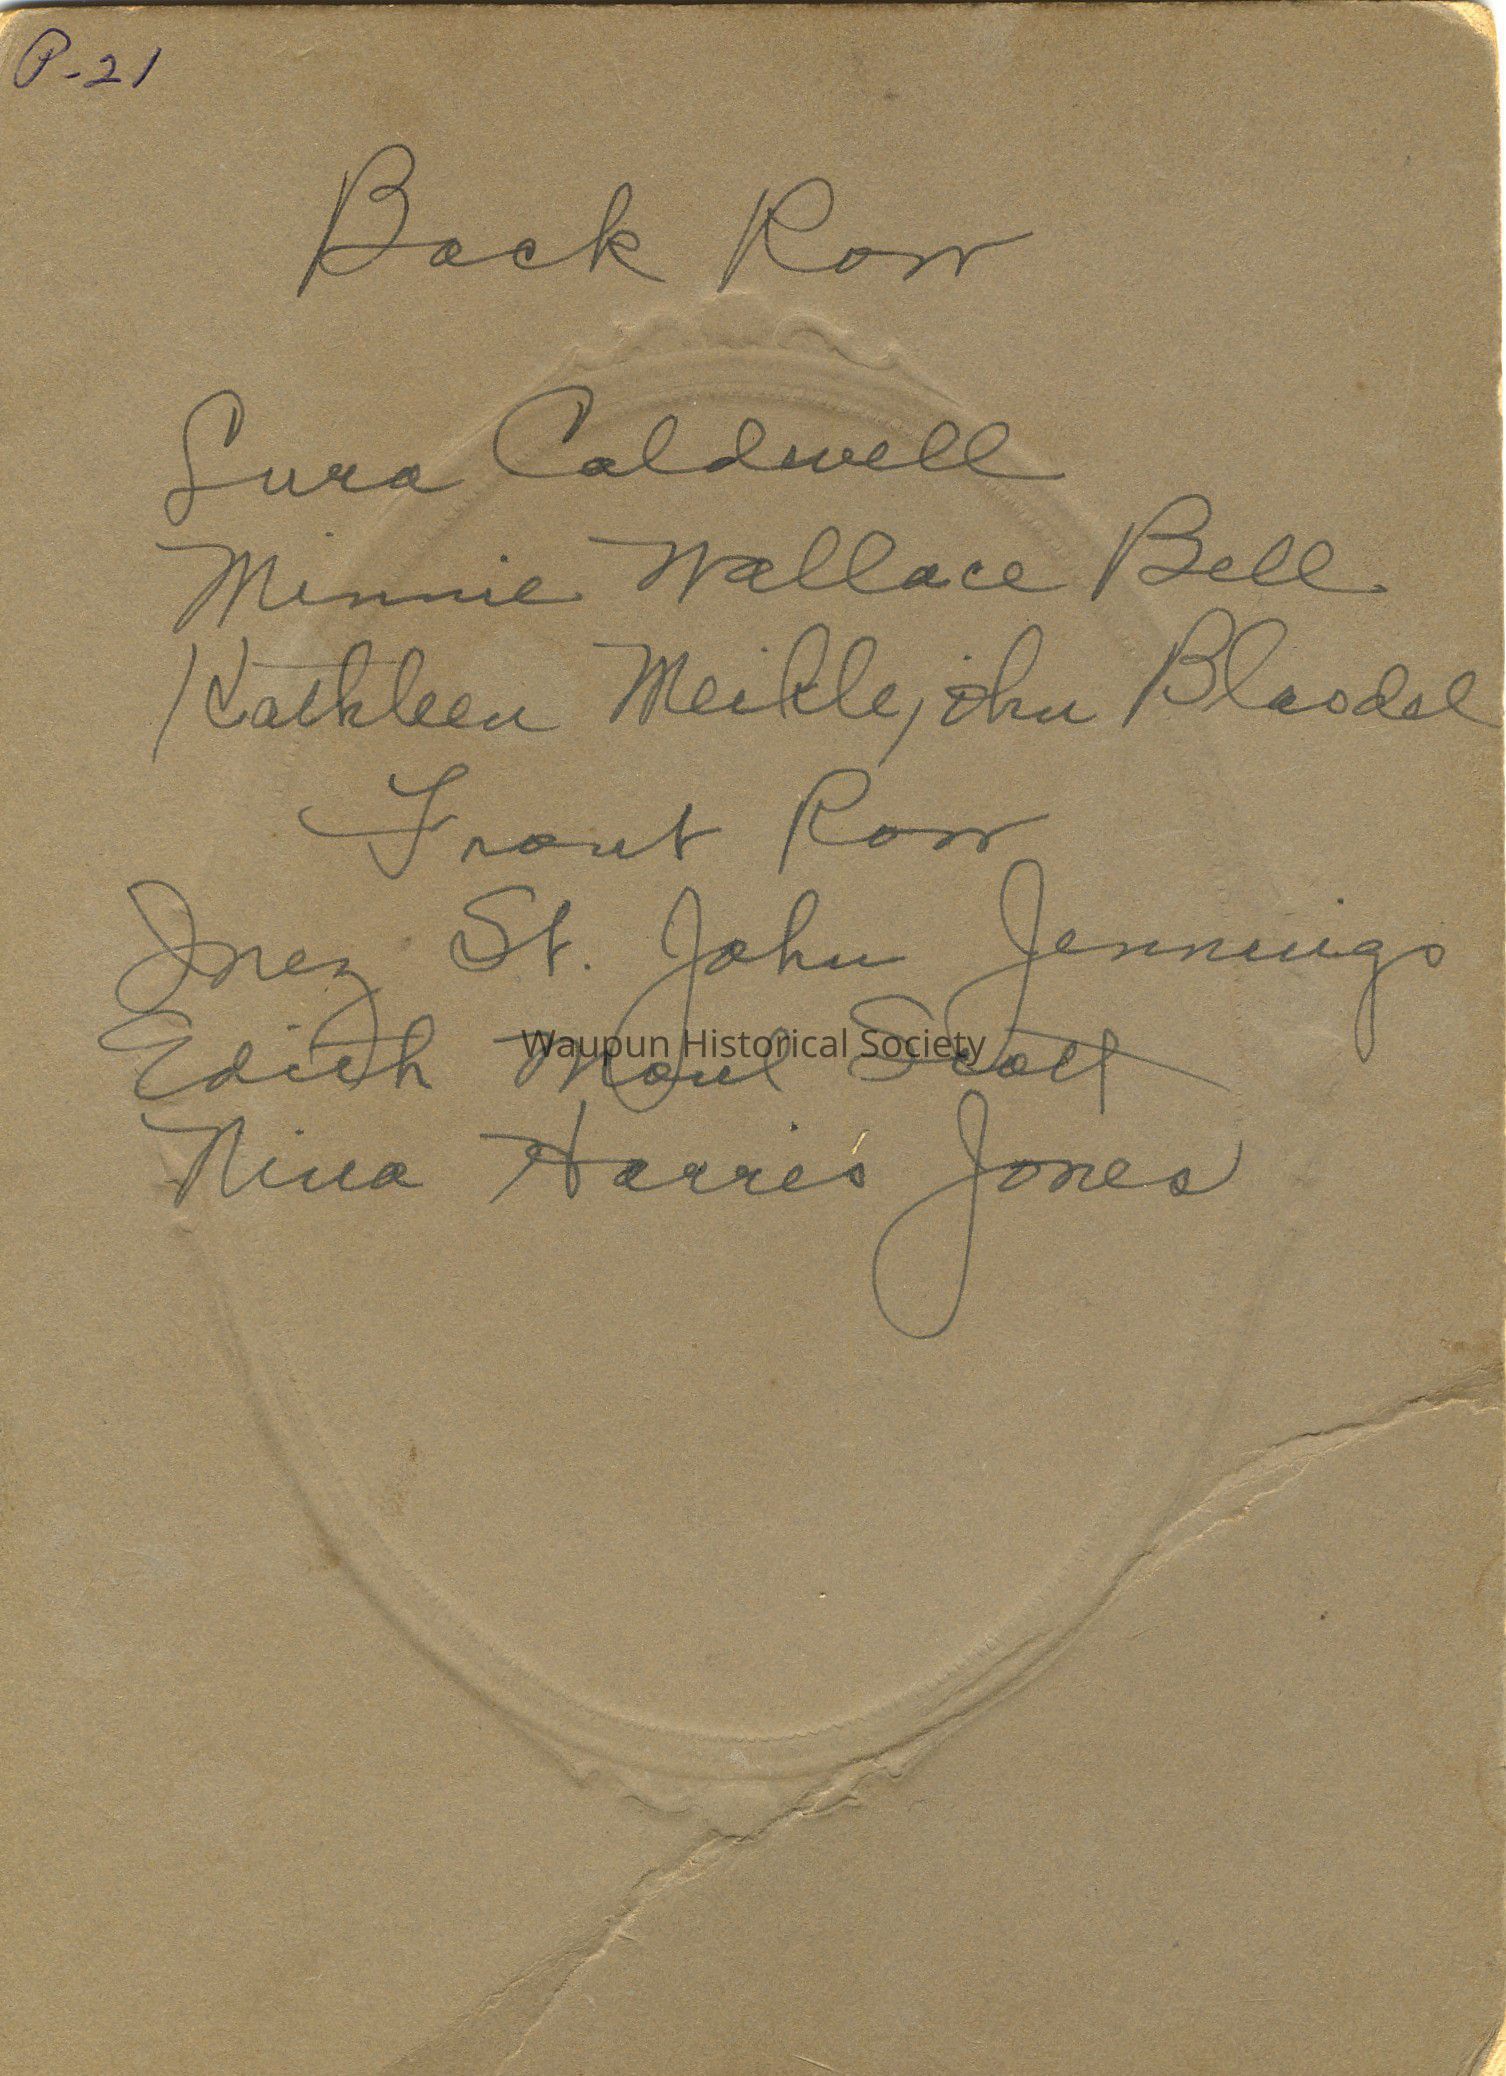 P-21
Back Row
Lura Caldwell
Minnie Wallace Bell
Kathleen Meiklejohn Blasdel
Front Row
Inez St. John Jennings
Waupun Historical Society
Edith Maul Scott
Nina Harris Jones